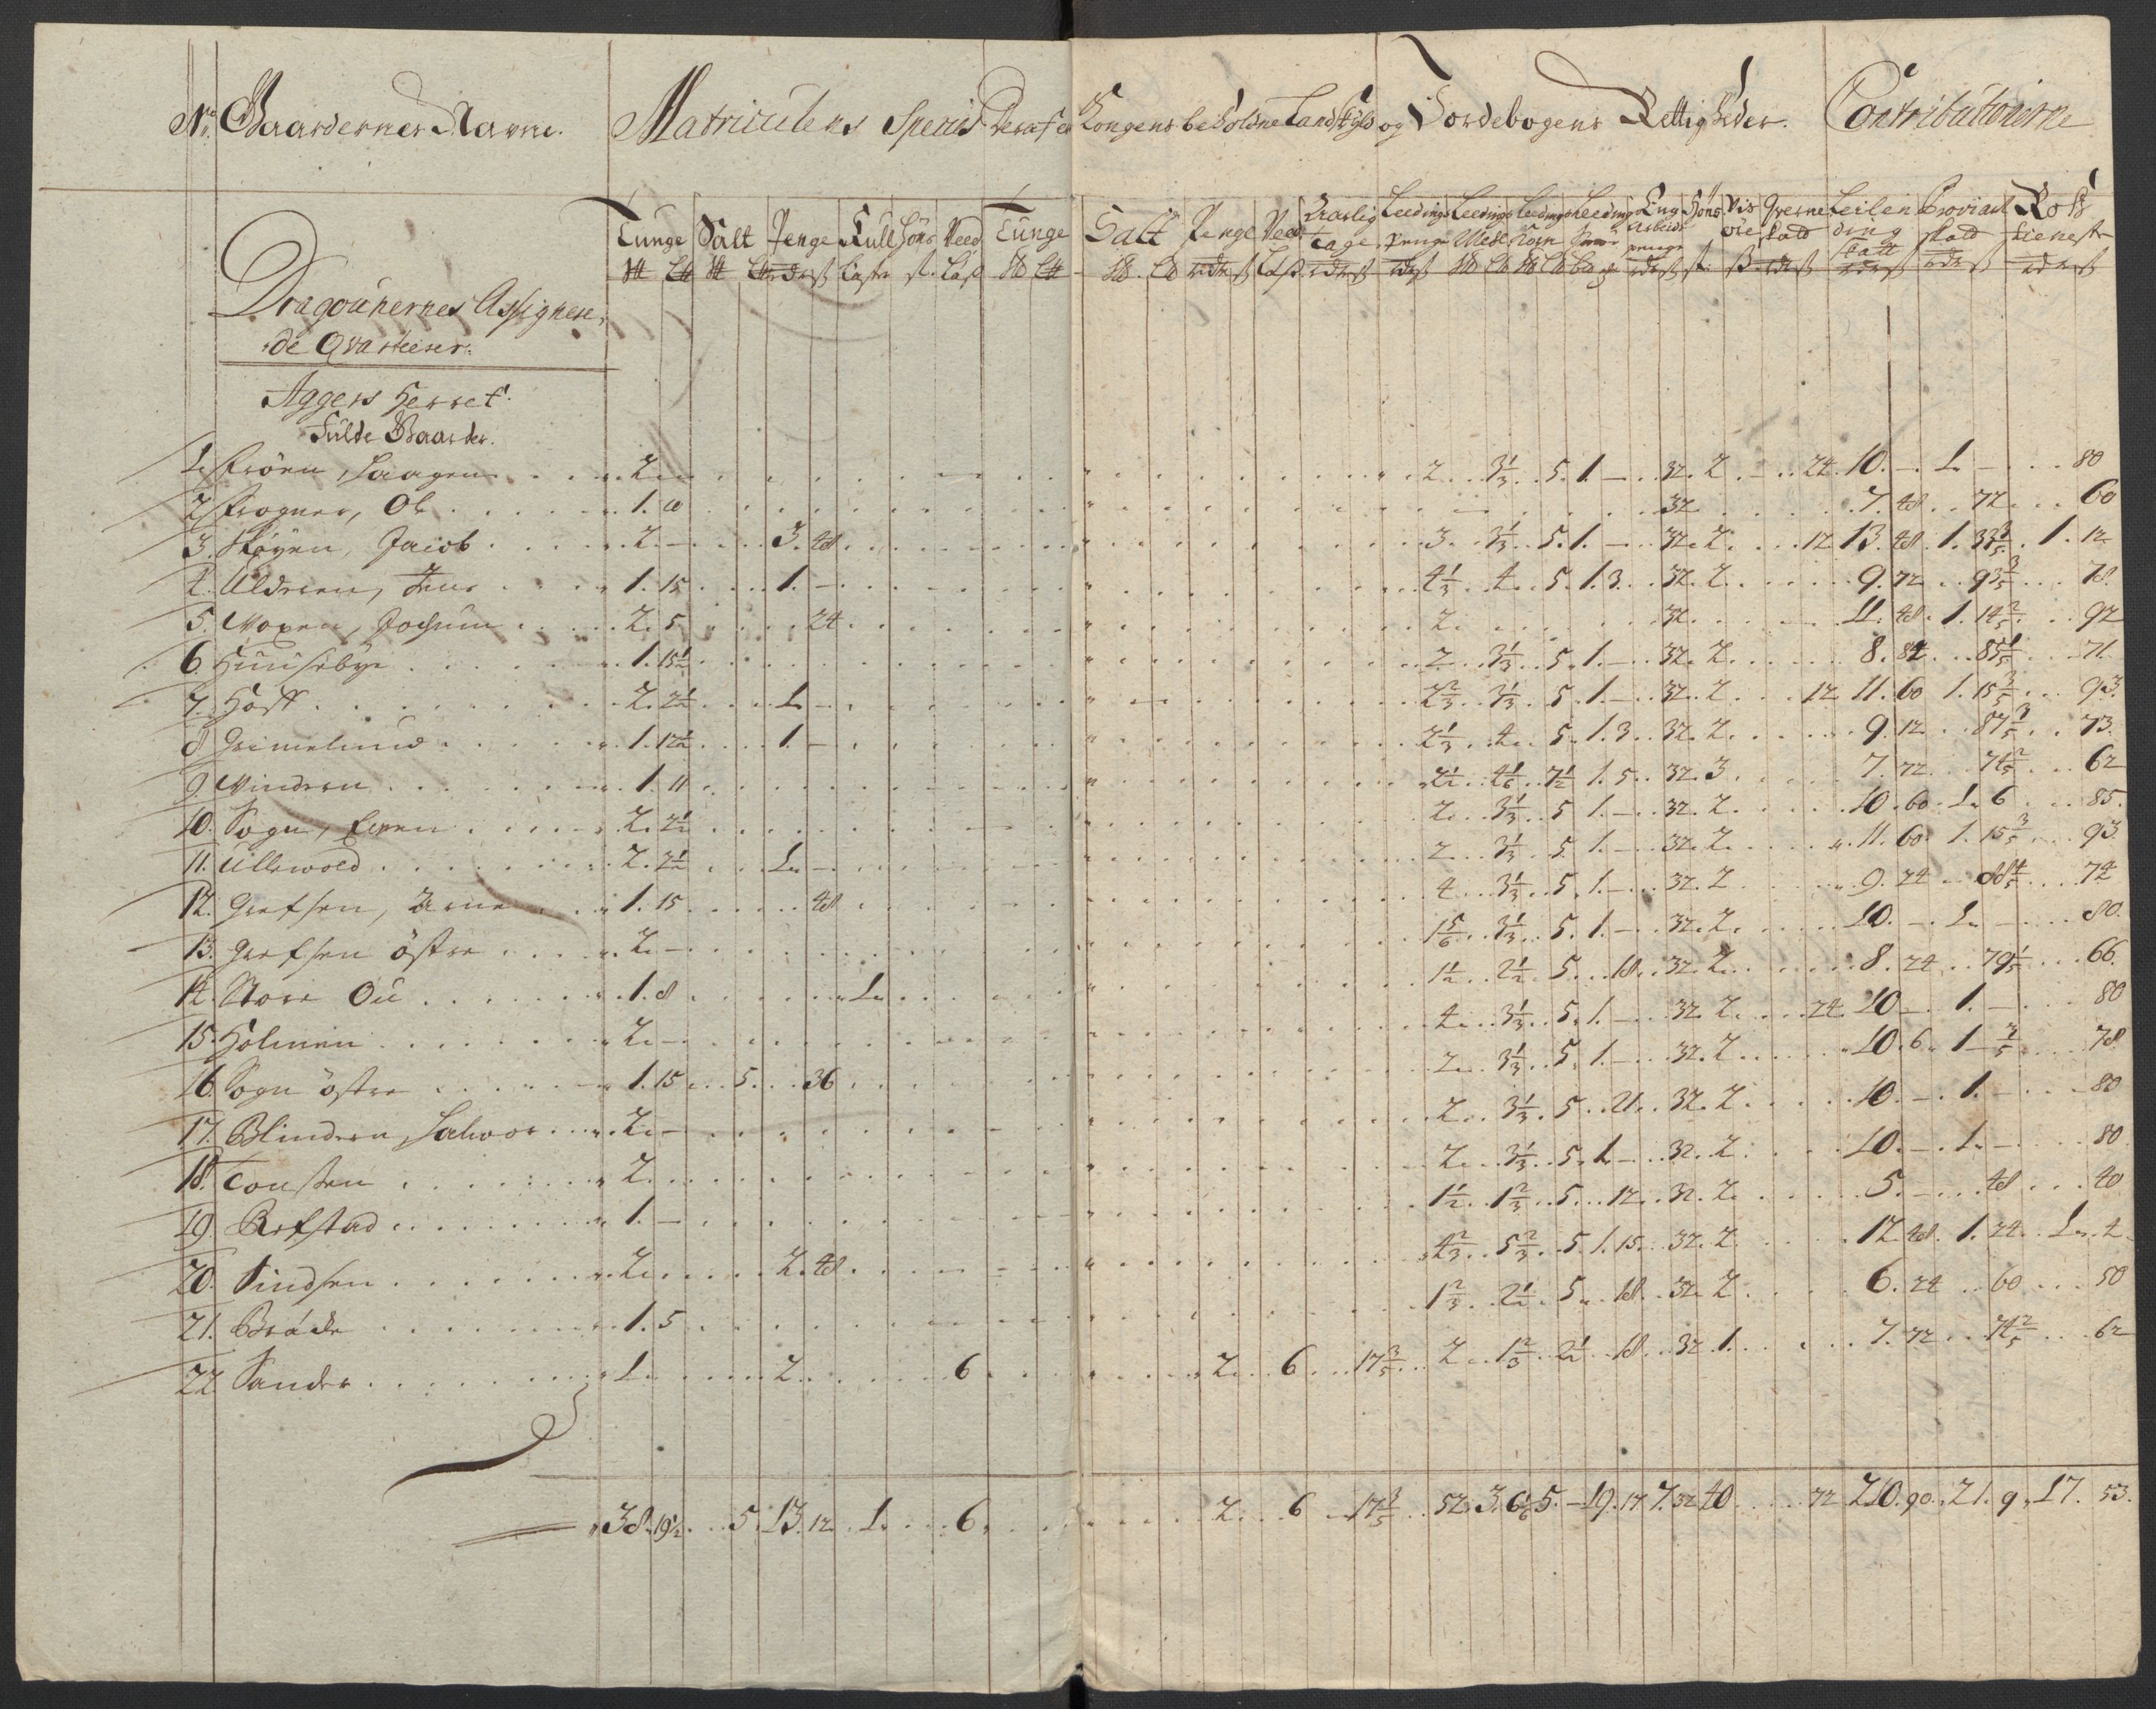 No. Gaardernes Navne. Matriculens Speci Deraf er Kongens beholdne Landskyld og Jordebogens Rettigheder. Contributionerne
Tunge Salt Penge Kull Höns Veed Tunge Salt Penge Veed Aarlig Tage Leedings penge Leedings Meel Leedings Korn Leedings Eng Arbeids penge Höns Vis öie Qverne skatt Leilending skatt Proviant skatt Ross tieneste
Dragounernes Assignere,
de Qvarteerer.
Aggers Herret.
Fulde Gaarder.
1. Fröen, Haagen 2. 2 3 1/3 5. 1. – 32. 2. – 24. 10. – 1. – 80
2. Frogner, Ole 1. 10 32 7. 48 72 60
3. Skøyen, Jacob 2. – 3. 48 3. 3 1/3 5. 1. – 32. 2. 12. 13. 48. 1. 33 3/5 1. 12
4. Uldreen, Jens 1. 15 1. – 4 1/3 4. 5. 1. 3. 32. 2. 9. 72 93 3/5 78.
5. Woxen, Jochum 2. 5 24 2. 32 11. 48. 1. 14 2/5 92
6. Huusebye 1. 15 1/2 2 3 1/3 5. 1. – 32. 2. 8. 84 85 1/5 71
7. Hoff 2. 2 1/2 1. – 2 2/3 3 1/3 5. 1. – 32. 2 12. 11. 60 1. 15 3/5 93.
8 Grimelund 1. 12 1/2 1. – 2 1/3 4. 5. 1. 3. 32. 2. 9. 12. 87 3/5 73.
9 Vindern 1. 11 2 1/2 4 1/6 7 1/2 1. 5. 32. 3. 7. 72. 74 2/5 62
10. Sogn, Even 2. 2 1/2 2. 3 1/3 5 1. – 32. 2. 10. 60. 1. 6 85.
11. Ullewold 2. 2 1/2 1. – 2 3 1/3 5. 1. – 32. 2. 11. 60. 1. 15 3/5 93
12. Grefsen, Arne 1. 15 48 4 3 1/3 5. 1. – 32. 2 9. 24 88 4/5 74
13. Grefsen östre 2. – 1 5/6 3 1/3 5. 1. – 32. 2. 10. – 1. – 80.
14. Store Ou 1. 8 1. 1 1/2 2 1/2 5. 18. 32. 2. 8. 24 79 1/5 66.
15. Holmen 2. – 4. 3 1/3 5. 1. – 32. 2. 24. 10 – 1. – 80
16. Sogn östre 1. 15 5 36 2. 3 1/3 5. 1. – 32. 2. 10. 6. 1 – 2/5 78
17. Blindern, Halvor 2. – 2. 3 1/3 5. 21. 32. 2. 10. – 1. – 80
18. Tousen 2. 2. 3 1/3 5. 1. – 32. 2. 10. – 1. – 80
19. Refstad 1. – 1 1/2 1 2/3 5. 12. 32. 2. 5. – 48 40
20. Sindsen 2. 2. 48 4 2/3 5 2/3 5. 1. 15. 32. 2. 12. 48. 1. 24. 1. 4
21. Bråde 1. 5 1 2/3 2 1/2 5. 18. 32. 2. 6. 24 60 50
22 Sander 1. 2. 6 2. 6 17 3/5 2 1 2/3 2 1/2 18. 32. 1. 7. 72 74 2/5 62
38. 19 1/2 5 13. 12. 1. 6. 2. 6 17 3/5 52. 3. 6 1/6 5. – 19. 17 7. 32 40 72 210. 90. 21. 9. 17. 53.